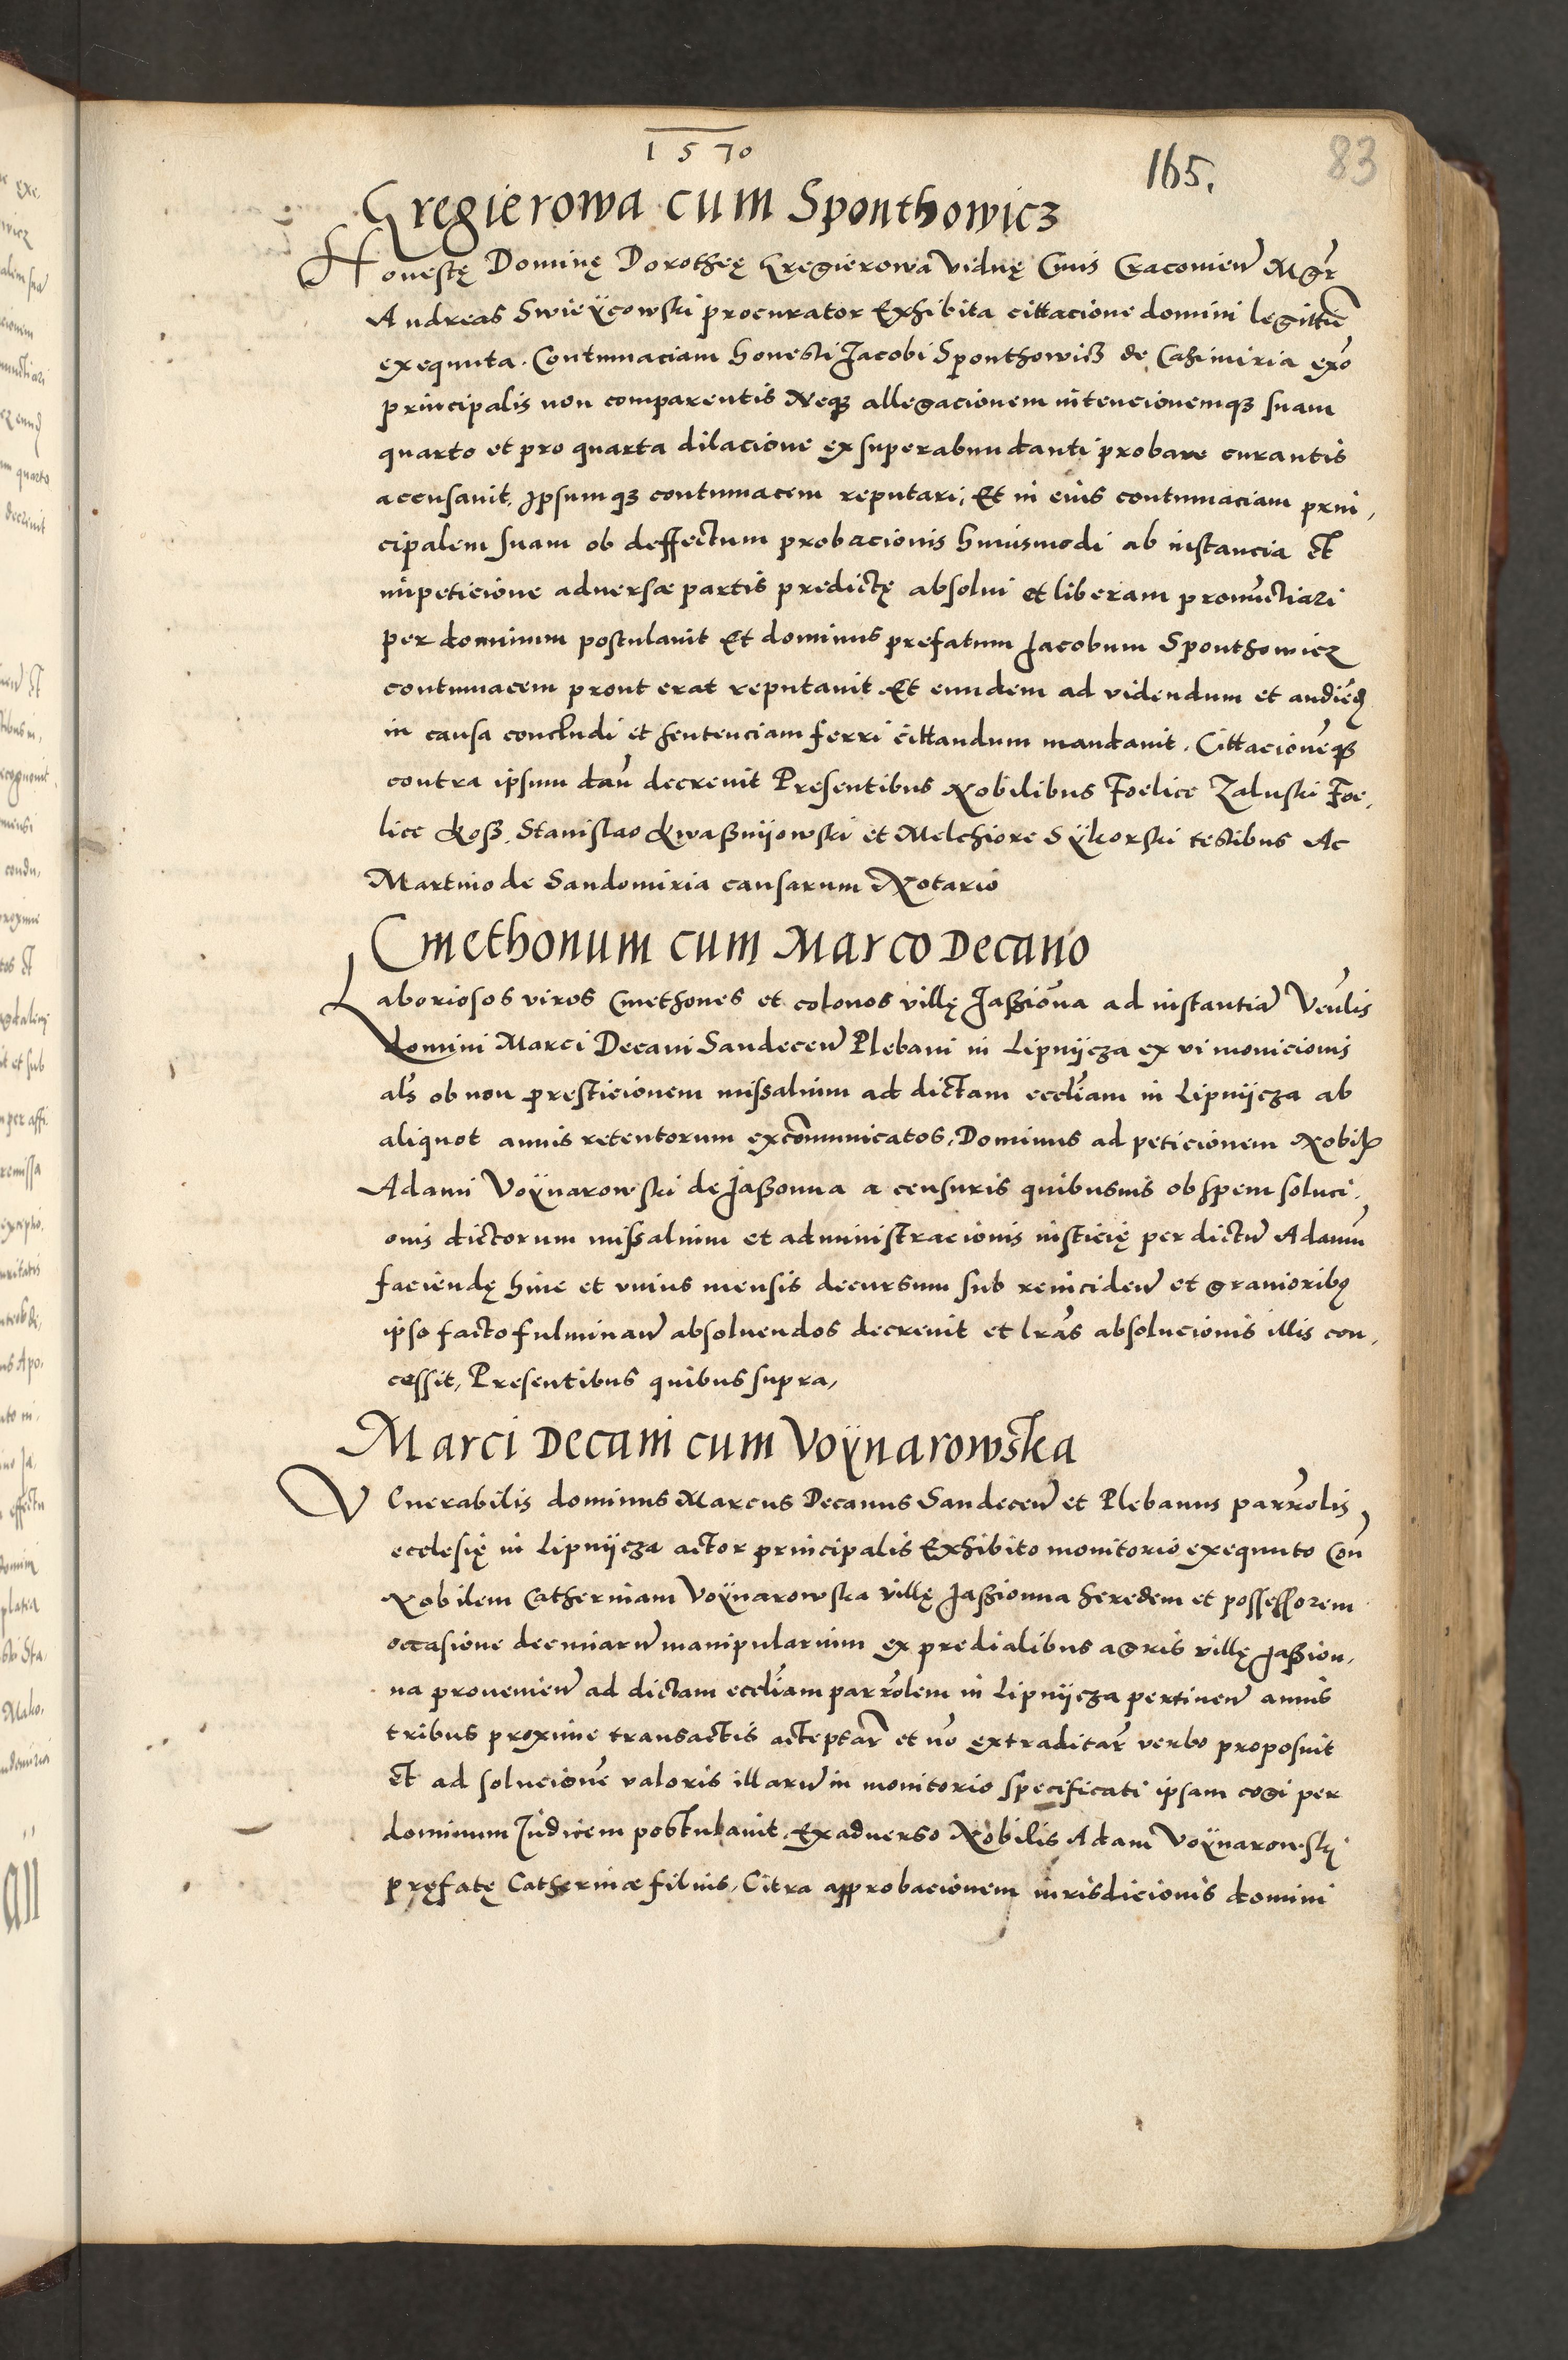 1570
165.
83
Gregierowa cum Sponthowicz
Honestę Dominę Dorotheę Gregierowa Viduę Civis Cracovien̄ Mgr̄
Andreas Swieÿcowski procurator Exhibita cittacione domini legittīē
exequuta. Contumaciam honesti Jacobi Sponthowicz de Casimiria ex̄o
principalis non comparentis Neq₃ allegacionem intencionemq₃ suam
quarto et pro quarta dilacione ex superabundanti probare curantis
accusavit, Ipsumq₃ contumacem reputari, Et in eius contumaciam prin,
cipalem suam ob deffectum probacionis huiusmodi ab instancia et
impeticione adversæ partis predictę absolvi et liberam pronūctiari
per dominum postulavit Et dominus prefatum Jacobum Sponthowicz
contumacem prout erat reputavit Et eundem ad videndum et audiēd
in causa concludi et sentenciam ferri cittandum mandavit. Cittacionēq₃
contra ipsum daň decrevit Presentibus Nobilibus Foelice Zaluski Foe,
lice Koß. Stanislao Kwaßnijowski et Melchiore Sÿkorski testibus Ac
Martino de Sandomiria causarum Notario
Cmethonum cum Marco Decano
Laboriosos viros Cmethones et colonos villę Jaßiōna ad instantiā Veńlis
domini Marci Decani Sandecen̄ Plebani in Lipnijcza ex vi monicionis
als̄ ob non presticionem missalium ad dictam ecclīam in Lipnijcza ab
aliquot annis retentorum excōmunicatos, Dominus ad peticionem Nobil̄
Adami Voÿnarowski de Jaßonna a censuris quibusvis ob spem soluci,
onis dictorum missalium et administracionis iusticię per dictū Adamū
faciendę hinc et unius mensis decursum sub reinciden̄ et graviorib₉
ipso facto fulminan̄ absolvendos decrevit et lrās absolucionis illis con,
cessit, Presentibus quibus supra,
Marci Decani cum Voÿnarowska
Venerabilis dominus Marcus Decanus Sandecen̄ et Plebanus parr̄olis
ecclesię in Lipnijcza actor principalis Exhibito monitorio exequuto Con̄
Nobilem Catherinam Voÿnarowska villę Jaßionna heredem et possessorem
occasione decimarū manipularium ex predialibus agris villę Jaßion,
na provenien̄ ad dictam ecclīam parr̄olem in Lipnijcza pertinen̄ annis
tribus proxime transactis acceptar̄ et nō extraditar̄ verbo proposuit
et ad solucionē valoris illarū in monitorio specificati ipsam cogi per
dominum Judicem postulavit. Ex adverso Nobilis Adam Voÿnarowski
pręfatę Catherinæ filius, Citra approbacionem iurisdicionis domini